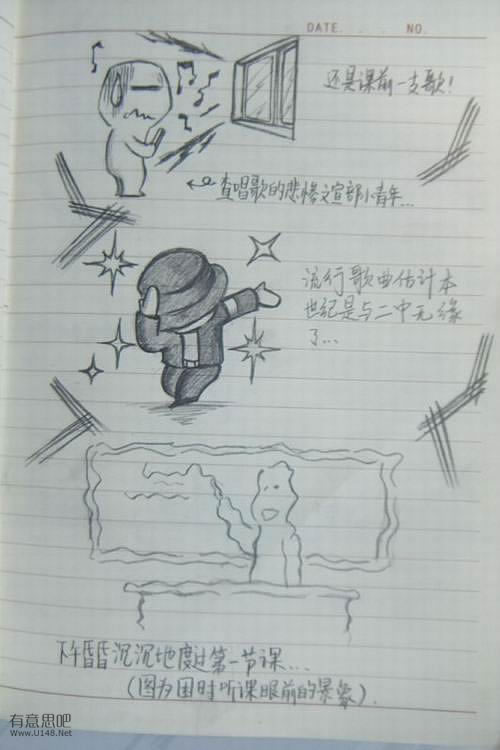 DATE. . . . NO.
还是课前一支歌！
查唱歌的悲惨文宣部小青年...
流行歌曲估计本
世纪是与二中无缘
了...
下午昏昏沉沉地度过第一节课...
（图为困时听课眼前的景象）.
有意思吧
www.U148.Net